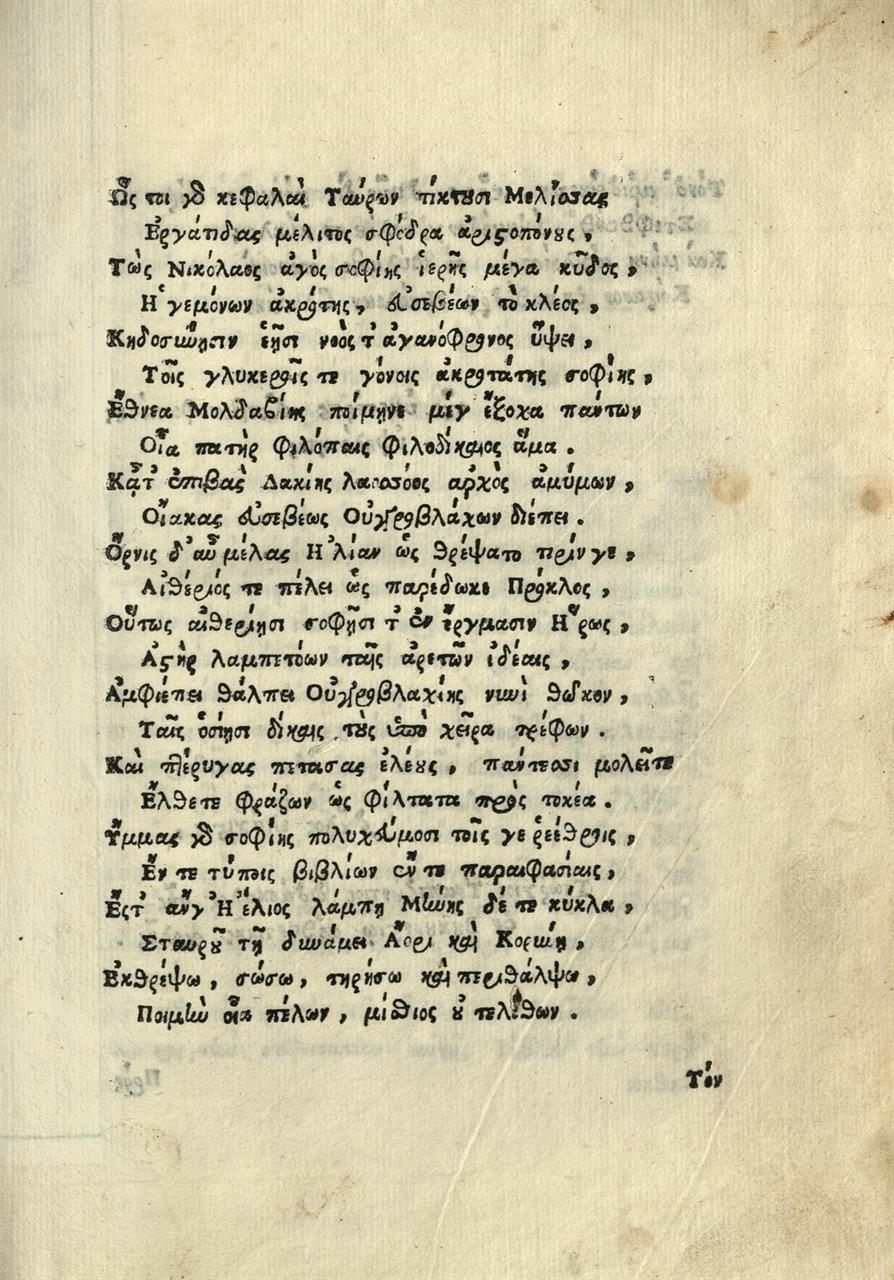 Ὥς τοι γὰρ κεφαλαὶ Ταύρων τίκτουσι Μελίσσας
Ἐργάτιδας μέλιτος σφόδρα ἀριστοπόνους,
Τὼς Νικόλαος ἀγὸς σοφίης ἱερῆς μέγα κῦδος,
Ἡγεμόνων ἀκρότης, εὐσεβέων τὸ κλέος,
Κηδοσύνῃσιν ἑῇσι νοὸς τ' ἀγανόφρονος ὕψει,
Τοῖς γλυκεροῖς τε γόνοις ἀκροτάτης σοφίης,
Ἔθνεα Μολδαβίης ποίμηνε μέγ' ἔξοχα πάντων
Οἷα πατὴρ φιλόπαις φιλοδίκαιος ἅμα.
Κᾆτ' ἐπιβὰς Δακίης λαοσσόος ἀρχὸς ἀμύμων,
Οἴακας εὐσεβέως Οὐγγροβλάχων διέπει.
Ὄρνις δ' αὖ μέλας Ἠλίαν ὡς θρέψατο πρίν γε,
Αἰθέριός τε πέλει ὡς παρέδωκε Πρόκλος,
Οὕτως αἰθερίῃσι σοφῇσί τ' ἐν ἔργμασιν Ἥρως,
Ἀστὴρ λαμπετόων ταῖς ἀρετῶν ἰδέαις,
Ἀμφιέπει θάλπει Οὐγγροβλαχίης νυνὶ θῶκον,
Ταῖς ὁσίῃσι δίκαις τοὺς ὑπὸ χεῖρα τρέφων.
Καὶ πτέρυγας πετάσας ἐλέους, πάντεσσι μολεῖτε
Ἔλθετε φράζων ὡς φίλτατα πρὸς τοκέα.
Υ̓́μμας γὰρ σοφίης πολυχεύμοσι τοῖς γε ῥεέθροις,
Ἔν τε τύποις βιβλίων ἔν τε παραιφασίαις,
Ἔστ' ἄν γ' Ἠέλιος λάμπῃ Μήνης δέ τε κύκλα,
Σταυροῦ τῇ δυνάμει Ἄορι καὶ Κορύνῃ,
Ἐκθρέψω, σώσω, τηρήσω καὶ περιθάλψω,
Ποιμὴν οἷα πέλων, μίσθιος οὐ τελέθων.
Τὸν